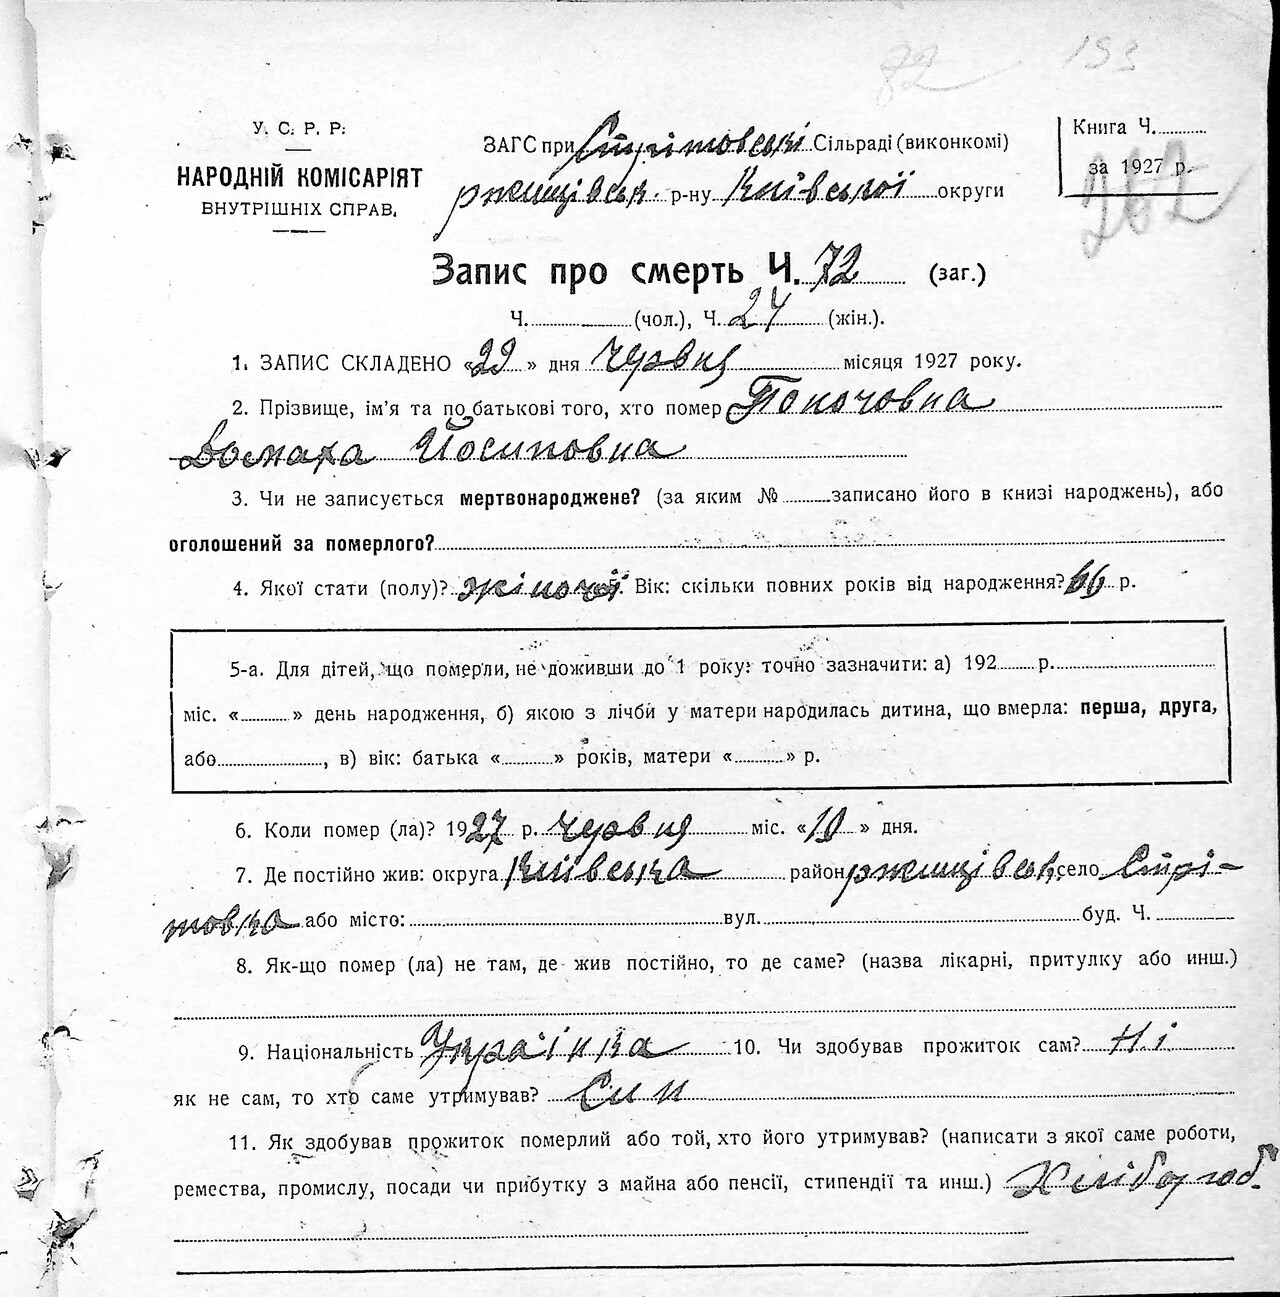 82 193
У. С. Р. Р.
НАРОДНІЙ КОМІСАРІЯТ
ВНУТРІШНІХ СПРАВ.
ЗАГС при Стрітовські Сільраді (виконкомі)
ржищівськ. р-ну Київської округи
Книга Ч.
за 1927 р.
262
Запис про смерть Ч. 72 (заг.)
Ч. (чол.), Ч. 24 (жін.).
1. ЗАПИС СКЛАДЕНО «22» дня червня місяця 1927 року.
2. Прізвище, ім'я та по батькові того, хто помер
Домаха Йосиповна
3. Чи не записується мертвонароджене? (за яким № записано його в книзі народжень), або
оголошений за померлого?
4. Якої стати (полу)? жіночої 5. Вік: скільки повних років від народження? 66 р.
5-а. Для дітей, що померли, не доживши до 1 року: точно зазначити: а) 192 р.
міс. « » день народження, б) якою з лічби у матери народилась дитина, що вмерла: перша, друга,
або , в) вік: батька « » років, матери « » р.
6. Коли помер (ла)? 1927 р. червня міс. «19» дня.
7. Де постійно жив: округа Київська район ржищівськ, село Стрі-
товка або місто: вул. буд. Ч.
8. Як-що помер (ла) не там, де жив постійно, то де саме? (назва лікарні, притулку або инш.)
9. Національність Українка 10. Чи здобував прожиток сам? Ні
як не сам, то хто саме утримував? Син
11. Як здобував прожиток померлий або той, хто його утримував? (написати з якої саме роботи,
ремества, промислу, посади чи прибутку з майна або пенсії, стипендії та инш.) Хлібороб.